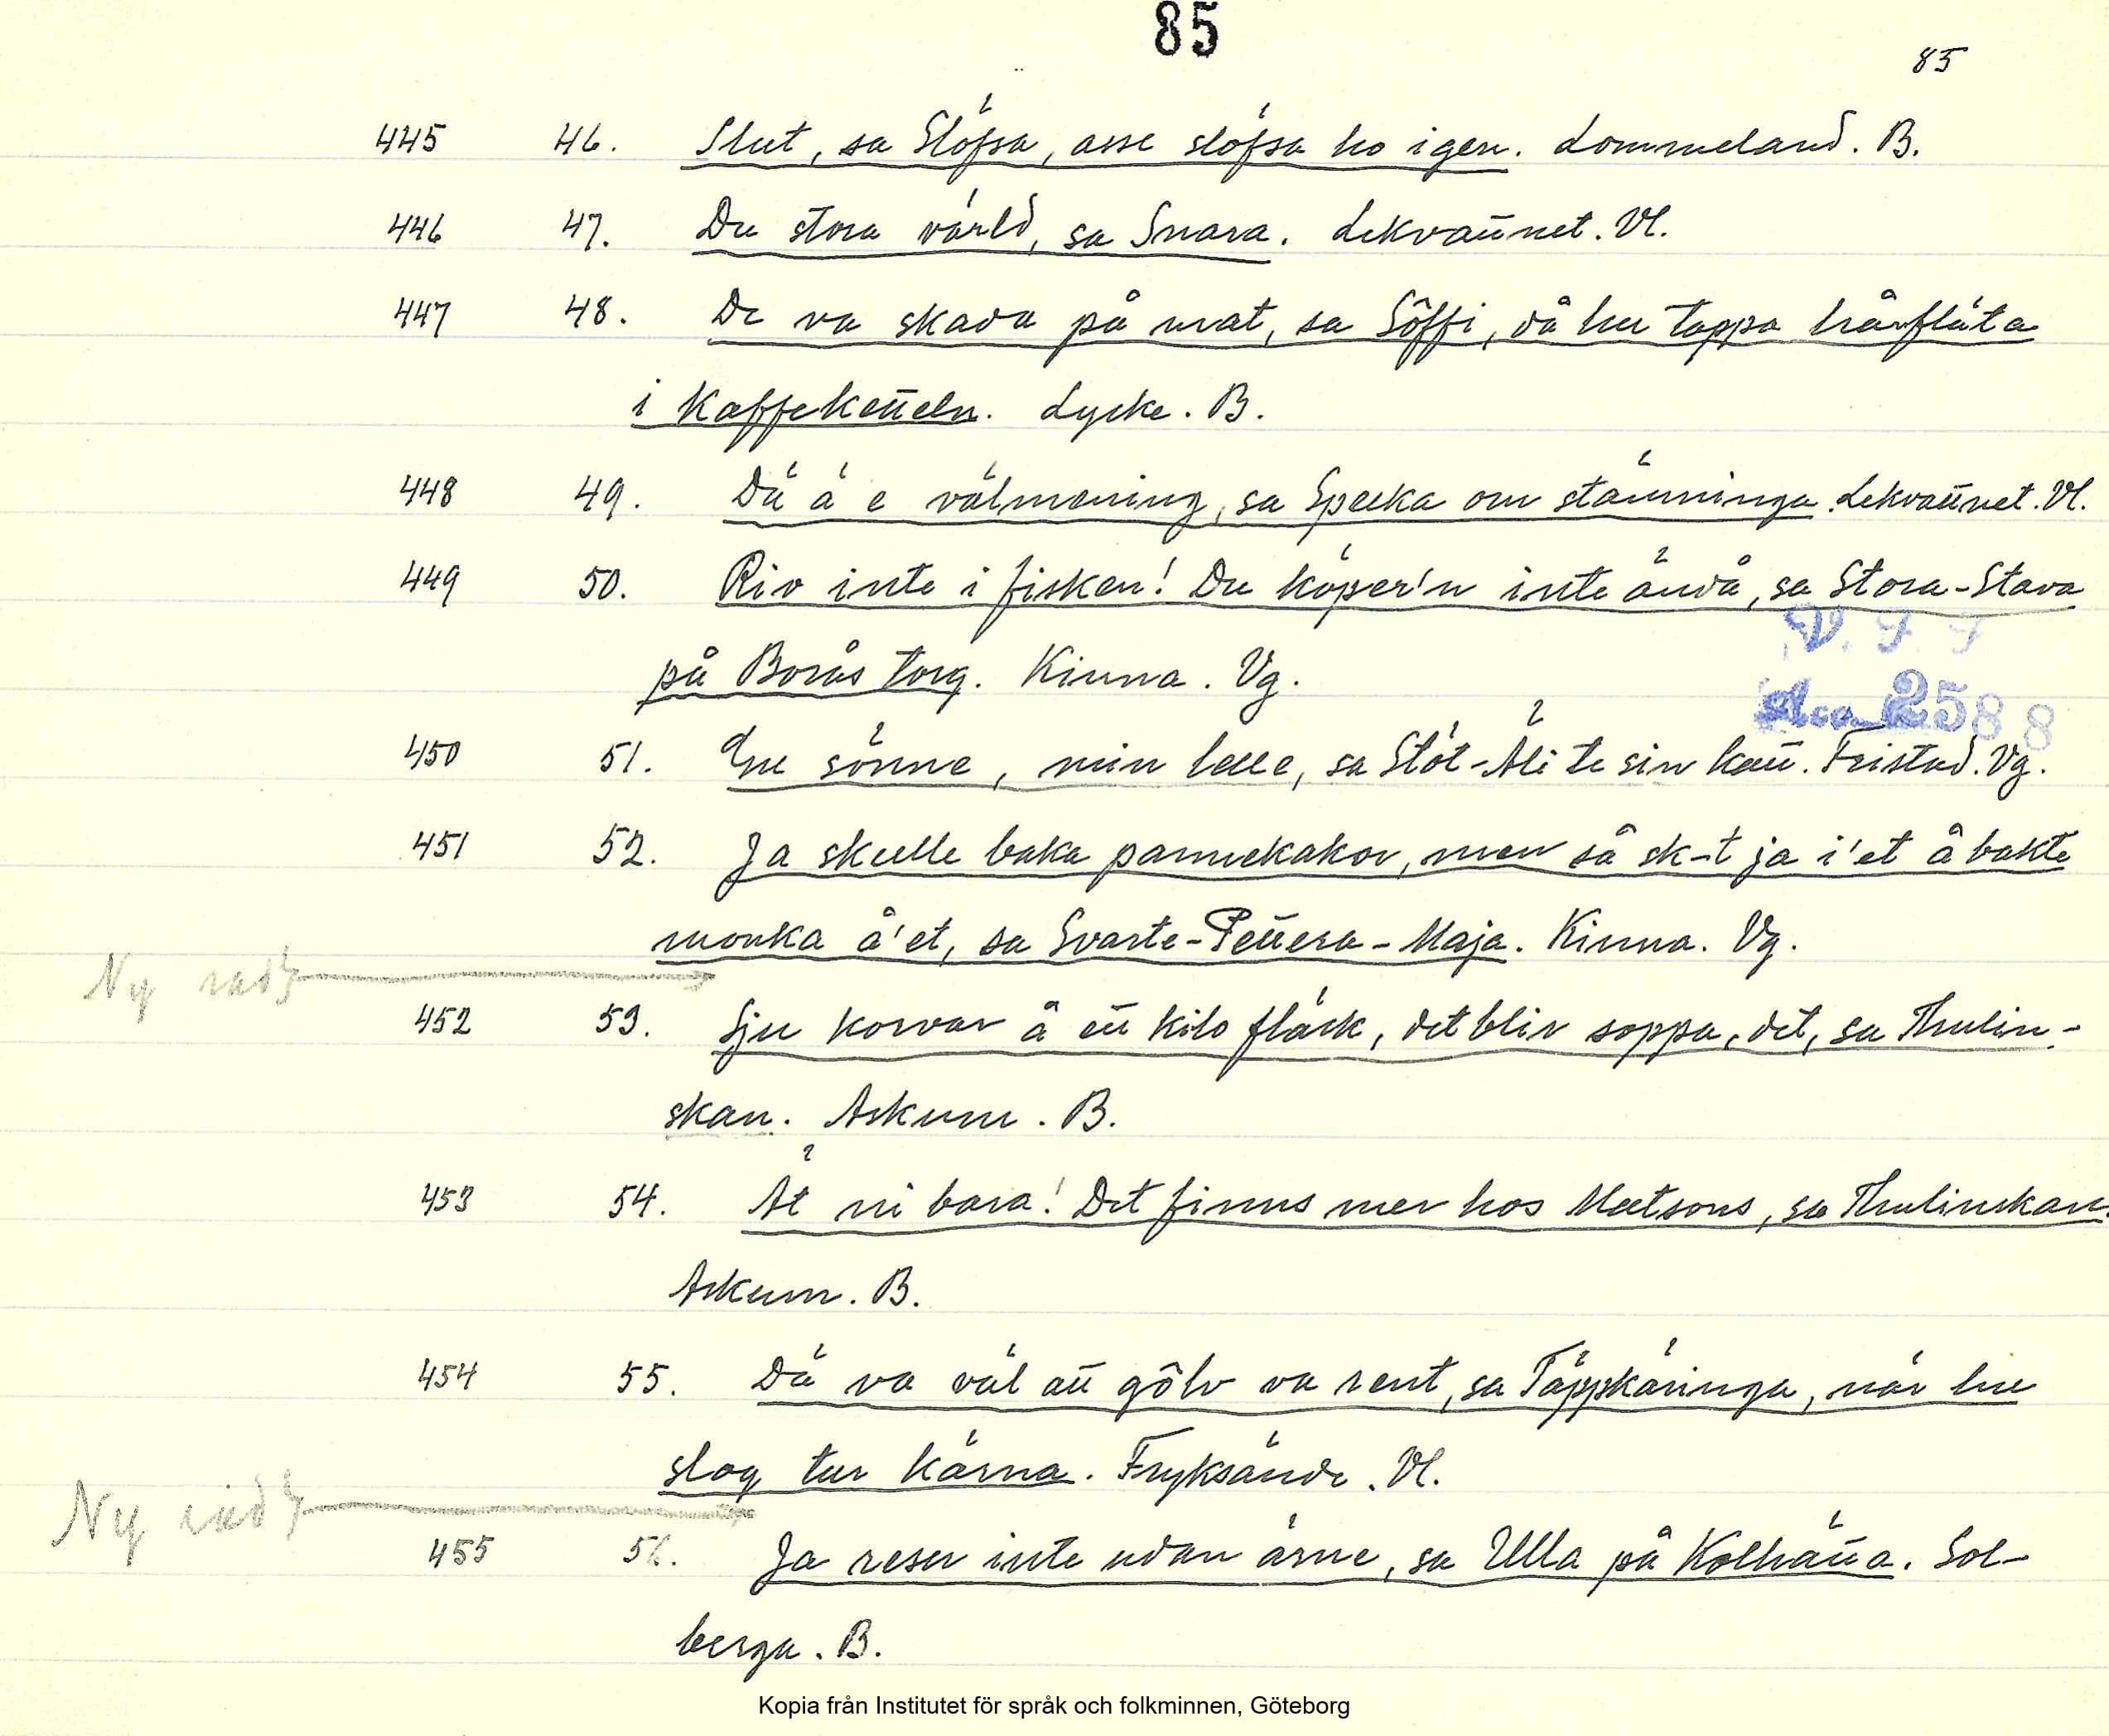 85
85
445 46. Slut, sa Slöfsa, asse slöfsa ho igen. Lommeland. B.
446 47. Du stora värld, sa Snara. Lekvattnet. Vl.
447 48. De va skada på mat, sa Söffi, då hu tappa hårfläta
i kaffeketteln. Lycke. B.
448 49. Dä ä e välmening, sa Spetta om stämninga. Lekvattnet. Vl.
449 50. Riv inte i fisken! Du köper'n inte ändå, sa Stora-Stava
på Borås torg. Kinna. Vg.
V. F. F
Acc. 2588
450 51. Gu sönne, min lelle, sa Slöt-Ali te sin katt. Fristad. Vg.
451 52. Ja skulle baka pannekakor, men så sk-t ja i'et å bakte
monka å'et, sa Svarte-Pettera-Maja. Kinna. Vg.
Ny rad
452 53. Sju korvar å ett kilo fläsk, det blir soppa, det, sa Thulin-
skan. Askum. B.
453 54. Ät ni bara! Det finns mer hos Matsons, sa Thulinskan.
Askum. B.
454 55. Dä va väl att gôlv va rent, sa Täppkäringa, när hu
slog tur kärna. Fryksände. Vl.
Ny rad
455 56. Ja reser inte udan ärne, sa Ulla på Kolhätta. Sol-
berga. B.
Kopia från Institutet för språk och folkminnen, Göteborg